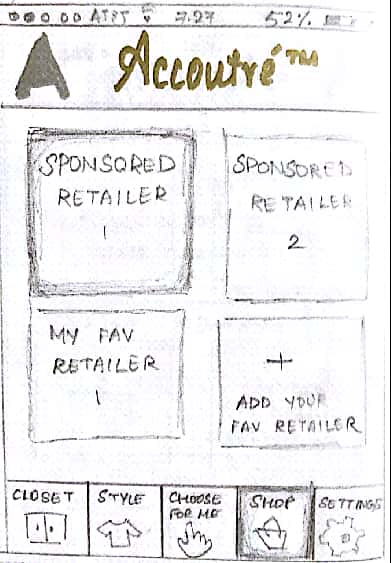 AT&T 7:27 52%
A Accoutré™
SPONSORED
RETAILER
1
SPONSORED
RETAILER
2
MY FAV
RETAILER
1
+
ADD YOUR
FAV RETAILER
CLOSET
STYLE
CHOOSE
FOR ME
SHOP
SETTINGS